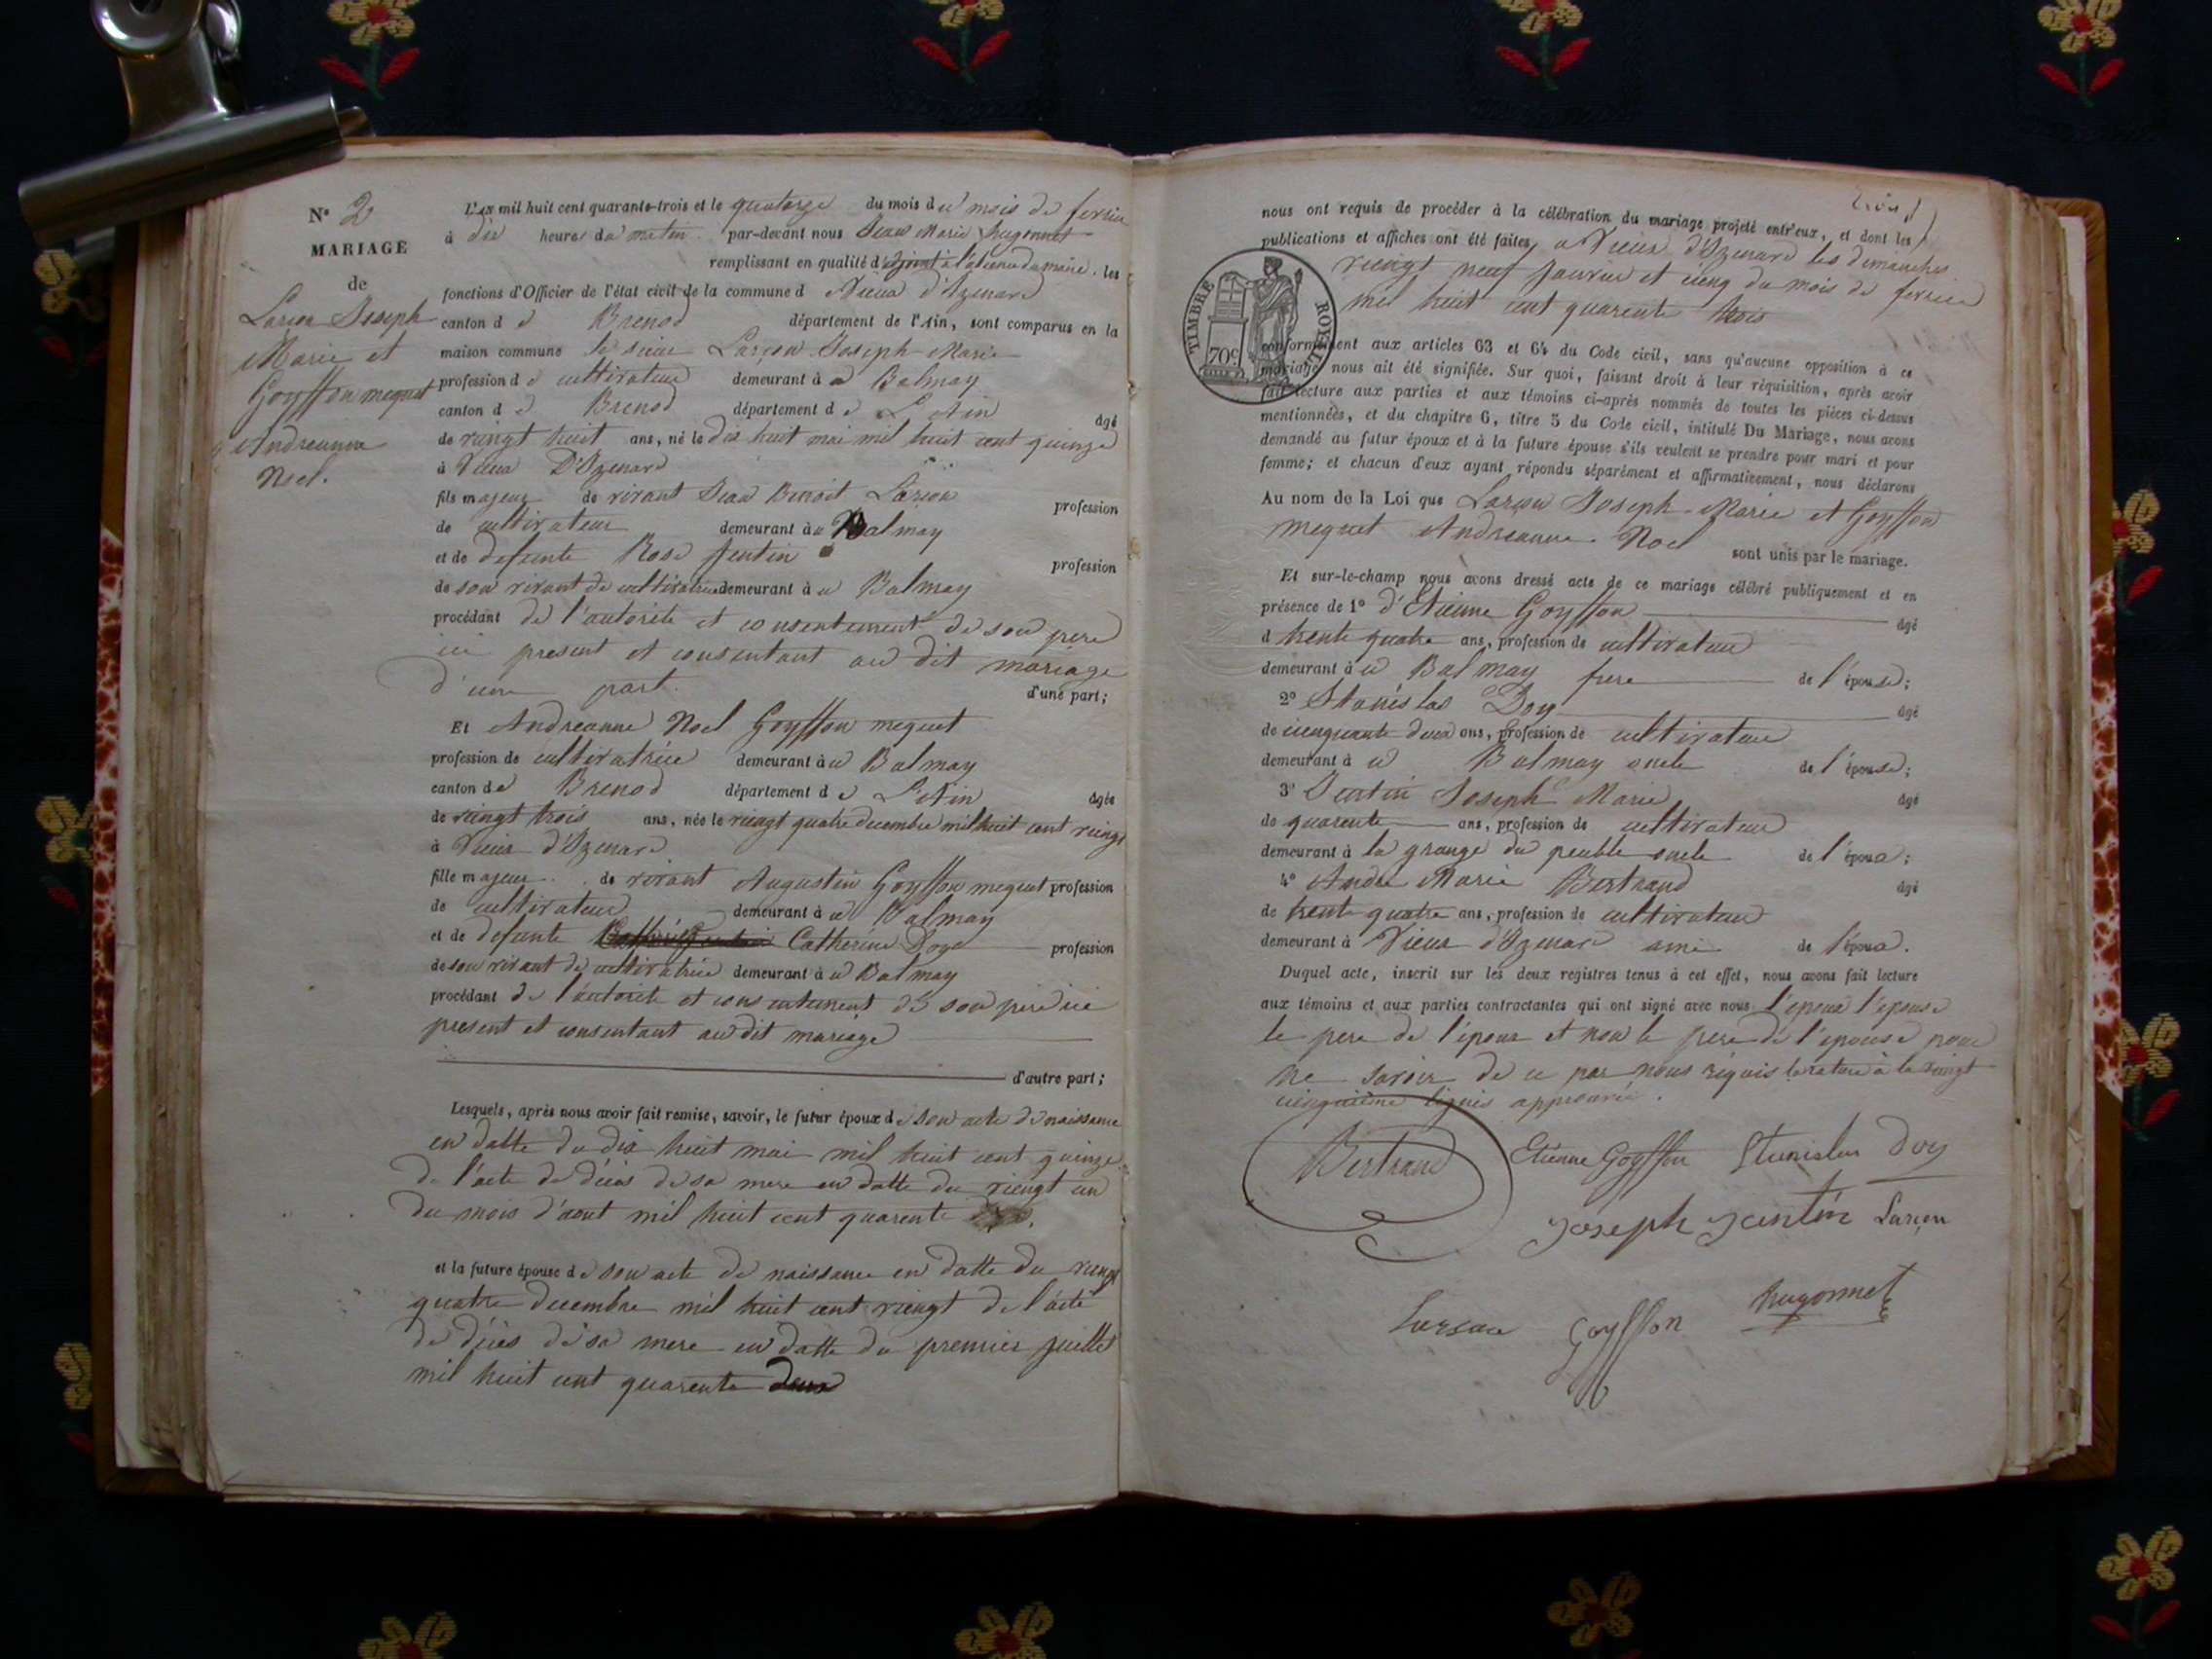 N° 2
MARIAGE
de
Larçon Joseph
Marie et
Goyffon mequet
Andreanne
Noel.
L'AN mil huit cent quarante-trois et le quatorze du mois du mois de fevrier
à dix heures du matin par-devant nous Jean Marie hugonnet
remplissant en qualité d'adjoint à l'absence du maire. les
fonctions d'Officier de l'état civil de la commune d Vieux d'Izenave
canton d e Brenod département de l'Ain, sont comparus en la
maison commune le sieur Larçon Joseph Marie
profession de cultivateur demeurant à a Balmay
canton d e Brenod département d e L'Ain âgé
de vingt huit ans, né le dix huit mai mil huit cent quinze
à Vieux D'Izenave
fils majeur de vivant Jean Benoit Larçon profession
de cultivateur demeurant à a Balmay
et de defunte Rose Jentin profession
de son vivant de cultivatrice demeurant à a Balmay
procédant de l'autorité et consentement de son pere
ici present et consentant au dit mariage
d'une part. d'une part;
Et Andreanne Noel Goyffon mequet
profession de cultivatrice demeurant à a Balmay
canton de Brenod département d e L'Ain âgée
de vingt trois ans, née le vingt quatre decembre mil huit cent vingt
à Vieux d'Izenave
fille majeur. de vivant Augustin Goyffon mequet profession
de cultivateur demeurant à a Balmay
et de defunte Catherine Doye profession
de son vivant de cultivatrice demeurant à a Balmay
procédant de l'autorité et consentement de son pere ici
present et consentant au dit mariage
d'autre part;
Lesquels, après nous avoir fait remise, savoir, le futur époux de son acte de naissance
en datte du dix huit mai mil huit cent quinze
de l'acte de décès de sa mere en datte du vingt un
du mois d'aout mil huit cent quarente
et la future épouse de son acte de naissance en datte du vingt
quatre decembre mil huit cent vingt de l'acte
de décès de sa mere en datte du premier juillet
mil huit cent quarente deux
trois
nous ont requis de procéder à la célébration du mariage projeté entr'eux, et dont les
publications et affiches ont été faites, a Vieux d'Izenave les dimanches
vingt neuf janvier et cinq du mois de fevrier
mil huit cent quarente trois
TIMBRE ROYAL
70c
conformément aux articles 63 et 64 du Code civil, sans qu'aucune opposition à ce
mariage nous ait été signifiée. Sur quoi, faisant droit à leur réquisition, après avoir
fait lecture aux parties et aux témoins ci-après nommés de toutes les pièces ci-dessus
mentionnées, et du chapitre 6, titre 5 du Code civil, intitulé Du Mariage, nous avons
demandé au futur époux et à la future épouse s'ils veulent se prendre pour mari et pour
femme; et chacun d'eux ayant répondu séparément et affirmativement, nous déclarons
Au nom de la Loi que Larçon Joseph Marie et Goyffon
mequet Andreanne Noel sont unis par le mariage.
Et sur-le-champ nous avons dressé acte de ce mariage célébré publiquement et en
présence de 1° d'Etienne Goyffon âgé
d trente quatre ans, profession de cultivateur
demeurant à a Balmay frere de l'épouse;
2° Stanislas Doy âgé
de cinquante deux ans, profession de cultivateur
demeurant à a Balmay oncle de l'épouse;
3° Jentin Joseph Marie âgé
de quarente ans, profession de cultivateur
demeurant à la grange du peuble oncle de l'époux;
4° André Marie Bertrand âgé
de trente quatre ans, profession de cultivateur
demeurant à Vieux d'Izenave ami de l'époux.
Duquel acte, inscrit sur les deux registres tenus à cet effet, nous avons fait lecture
aux témoins et aux parties contractantes qui ont signé avec nous l'epoux l'epouse
le pere de l'époux et non le pere de l'epouse pour
ne savoir de ce par nous réquis la rature à la vingt
cinquieme lignes approuvée.
Bertrand Etienne Goyffon Stanislas Doy
Joseph Jentin Larçon
Larçon Goyffon hugonnet